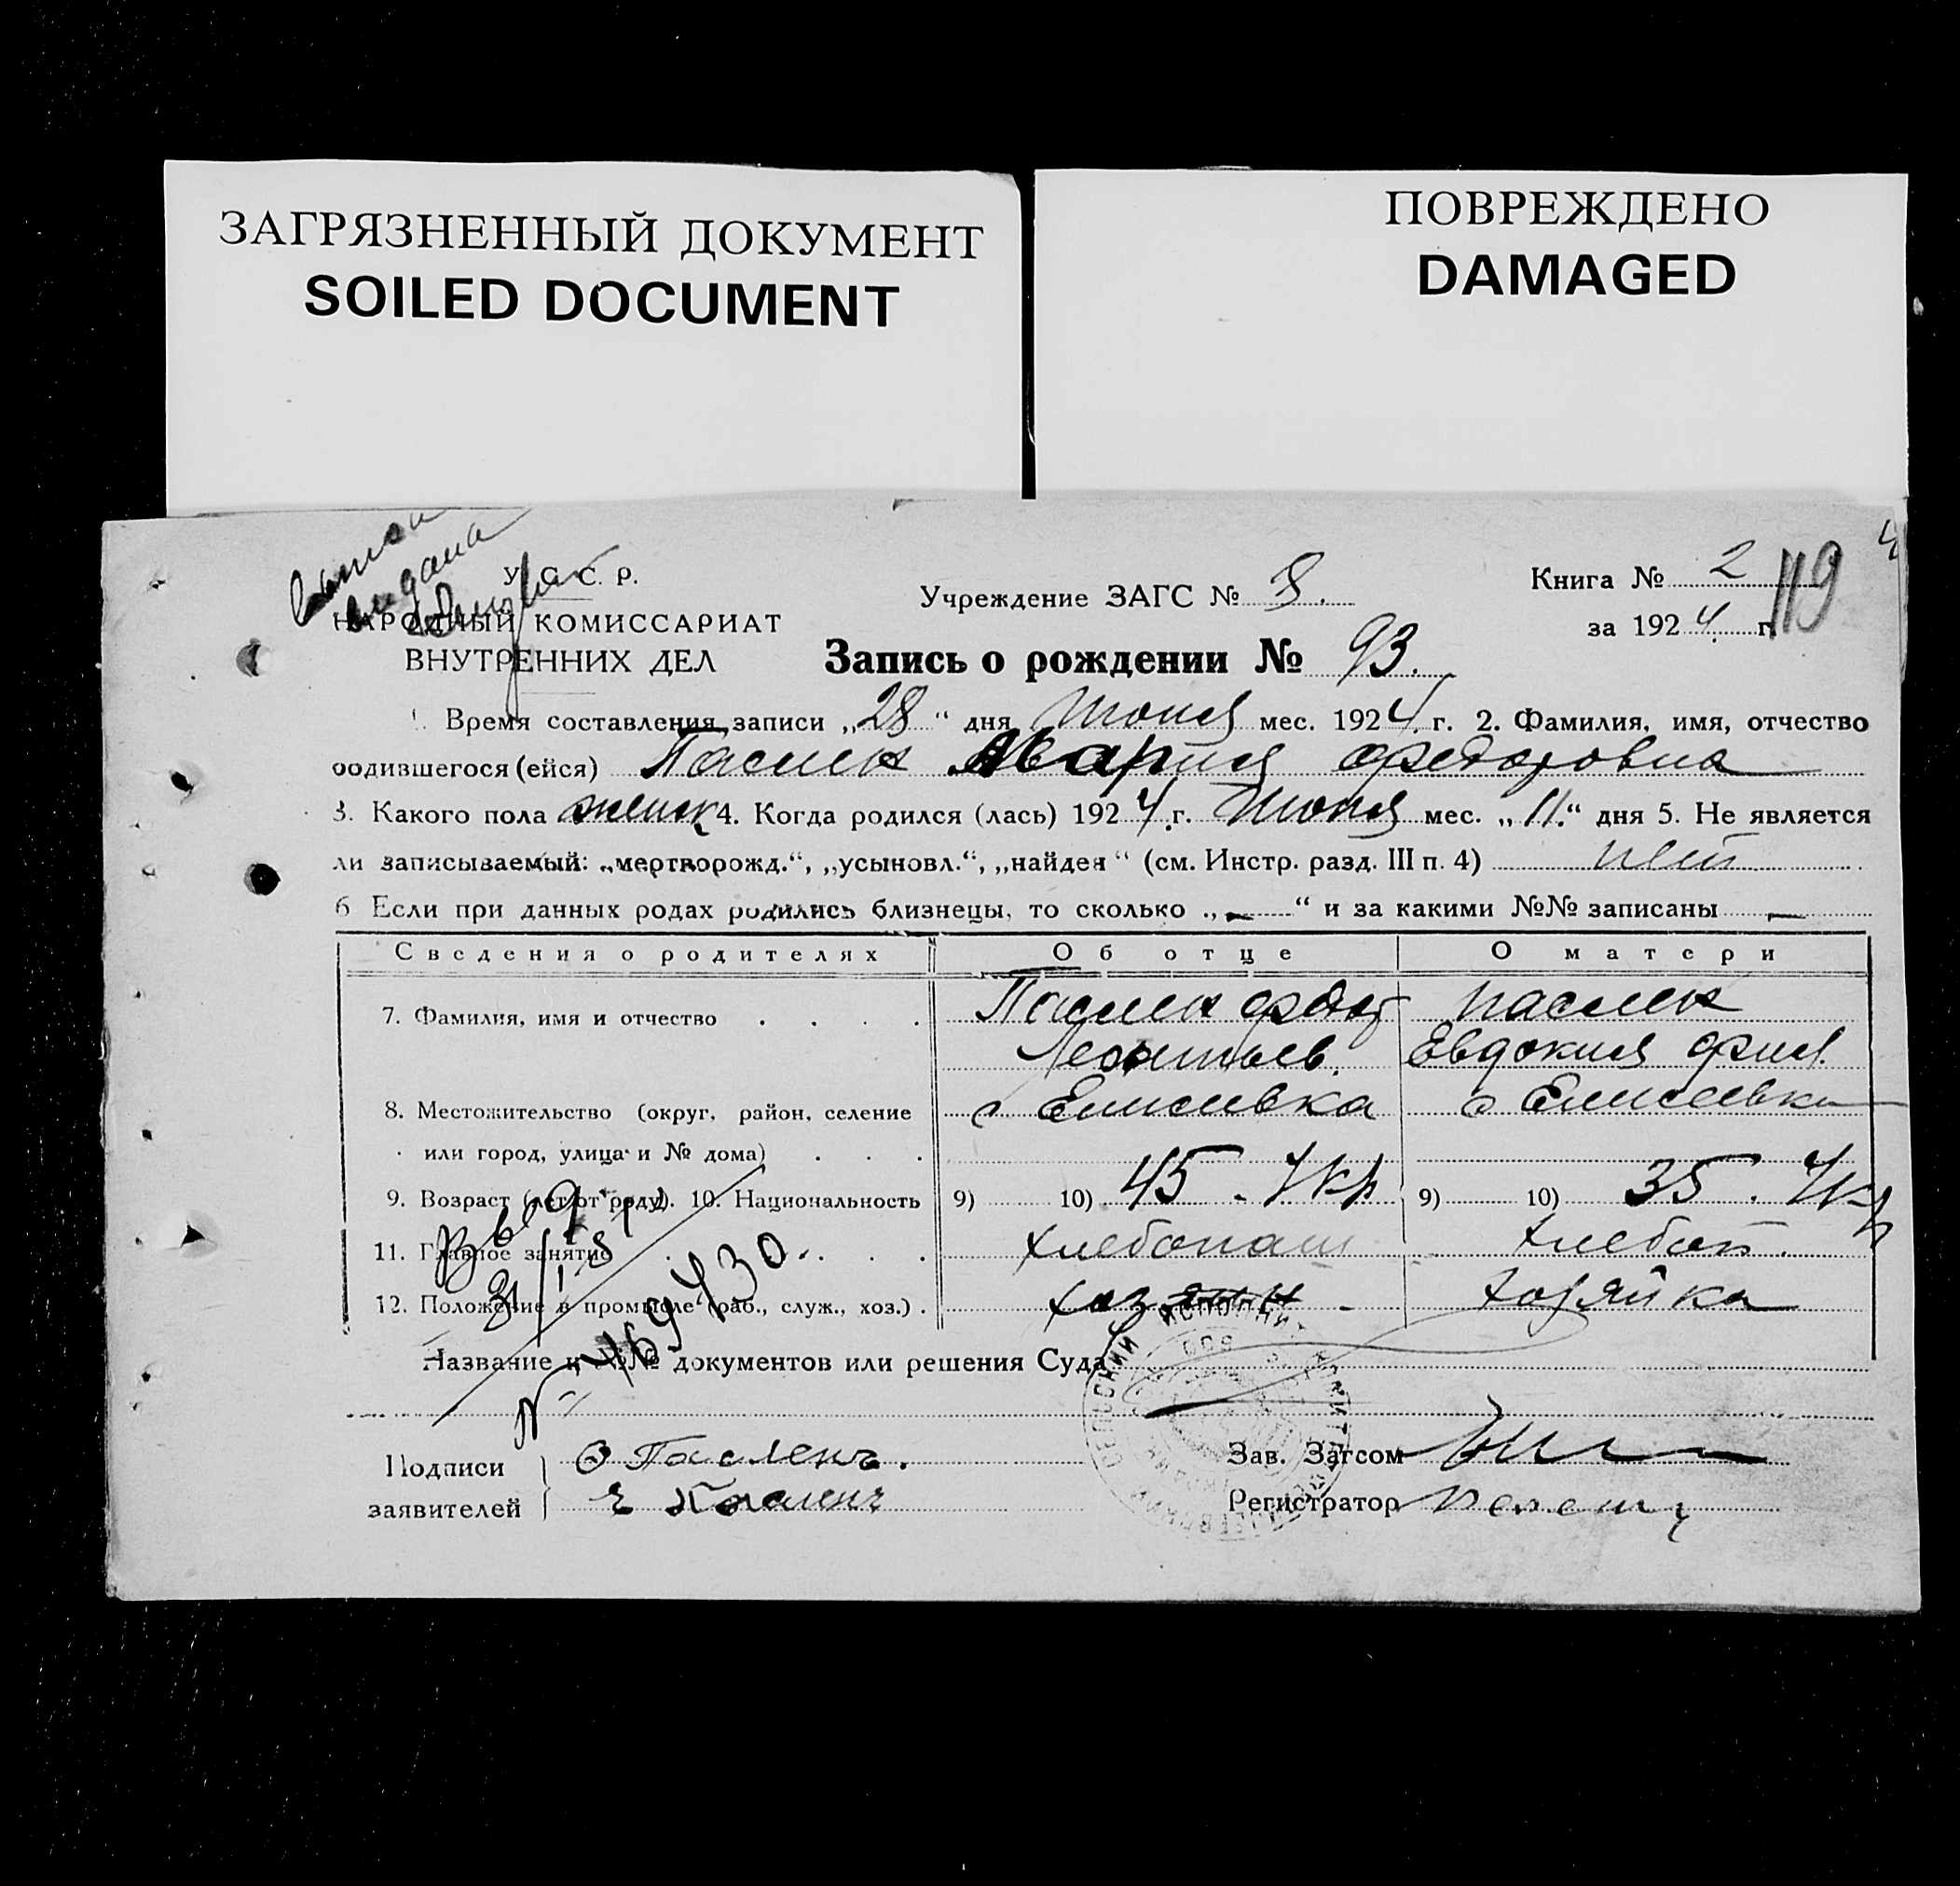 ЗАГРЯЗНЕННЫЙ ДОКУМЕНТ
SOILED DOCUMENT
ПОВРЕЖДЕНО
DAMAGED
выдана
У. С. С. Р.
НАРОДНЫЙ КОМИССАРИАТ
ВНУТРЕННИХ ДЕЛ
Учреждение ЗАГС № 8.
Книга № 2
за 1924. г.
119
Запись о рождении № 93.
1. Время составления записи „28“ дня Июня мес. 1924. г. 2. Фамилия, имя, отчество
родившегося (ейся) Паслен Мария Федоровна
3. Какого пола женск 4. Когда родился (лась) 1924. г. Июня мес. „11.“ дня 5. Не является
ли записываемый: „мертворожд.“, „усыновл.“, „найден“ (см. Инстр. разд. III п. 4) нет
6 Если при данных родах родились близнецы, то сколько „—“ и за какими №№ записаны —
Сведения о родителях Об отце О матери
7. Фамилия, имя и отчество . . . . Паслен Федор Паслен
Леонтьев. Евдокия Фил.
8. Местожительство (округ, район, селение с Елисеевка с Елисеевка
или город, улица и № дома) . . .
9. Возраст (лет от роду). 10. Национальность 9) 10) 45. Укр 9) 10) 35. Укр
11. Главное занятие . . . . Хлебопаш Хлебоп.
12. Положение в промысле (раб., служ., хоз.) . хозяин - Хозяйка
Название и №№ документов или решения Суда
Выд
31/1
№ 469430
Подписи
заявителей
Ф Пасленъ.
Е Пасленъ
Зав. Загсом
Регистратор